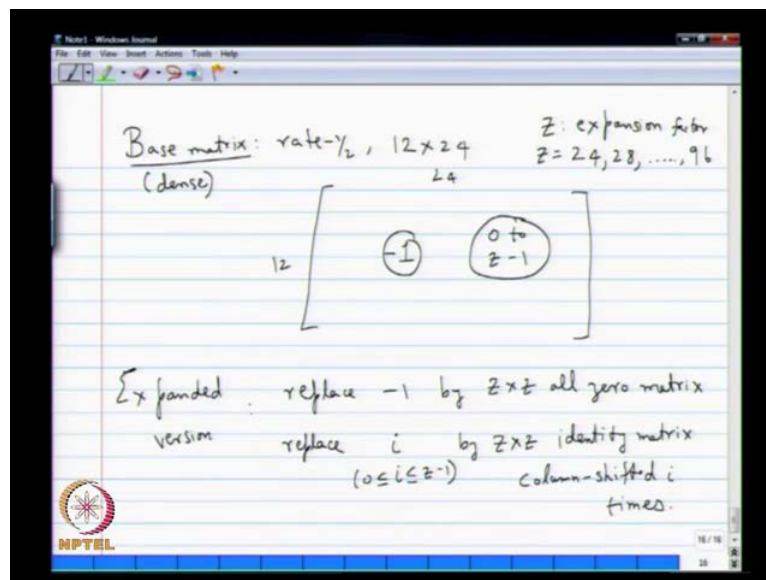 Note1 - Windows Journal
File Edit View Insert Actions Tools Help
Base matrix: rate-1/2, 12×24
(dense)
Z: expansion factor
Z = 24, 28, ....., 96
24
12
-1
0 to
z-1
Expanded version: replace -1 by z×z all zero matrix
replace i by z×z identity matrix
(0≤i≤z-1) column-shifted i
times.
NPTEL
16/16
16